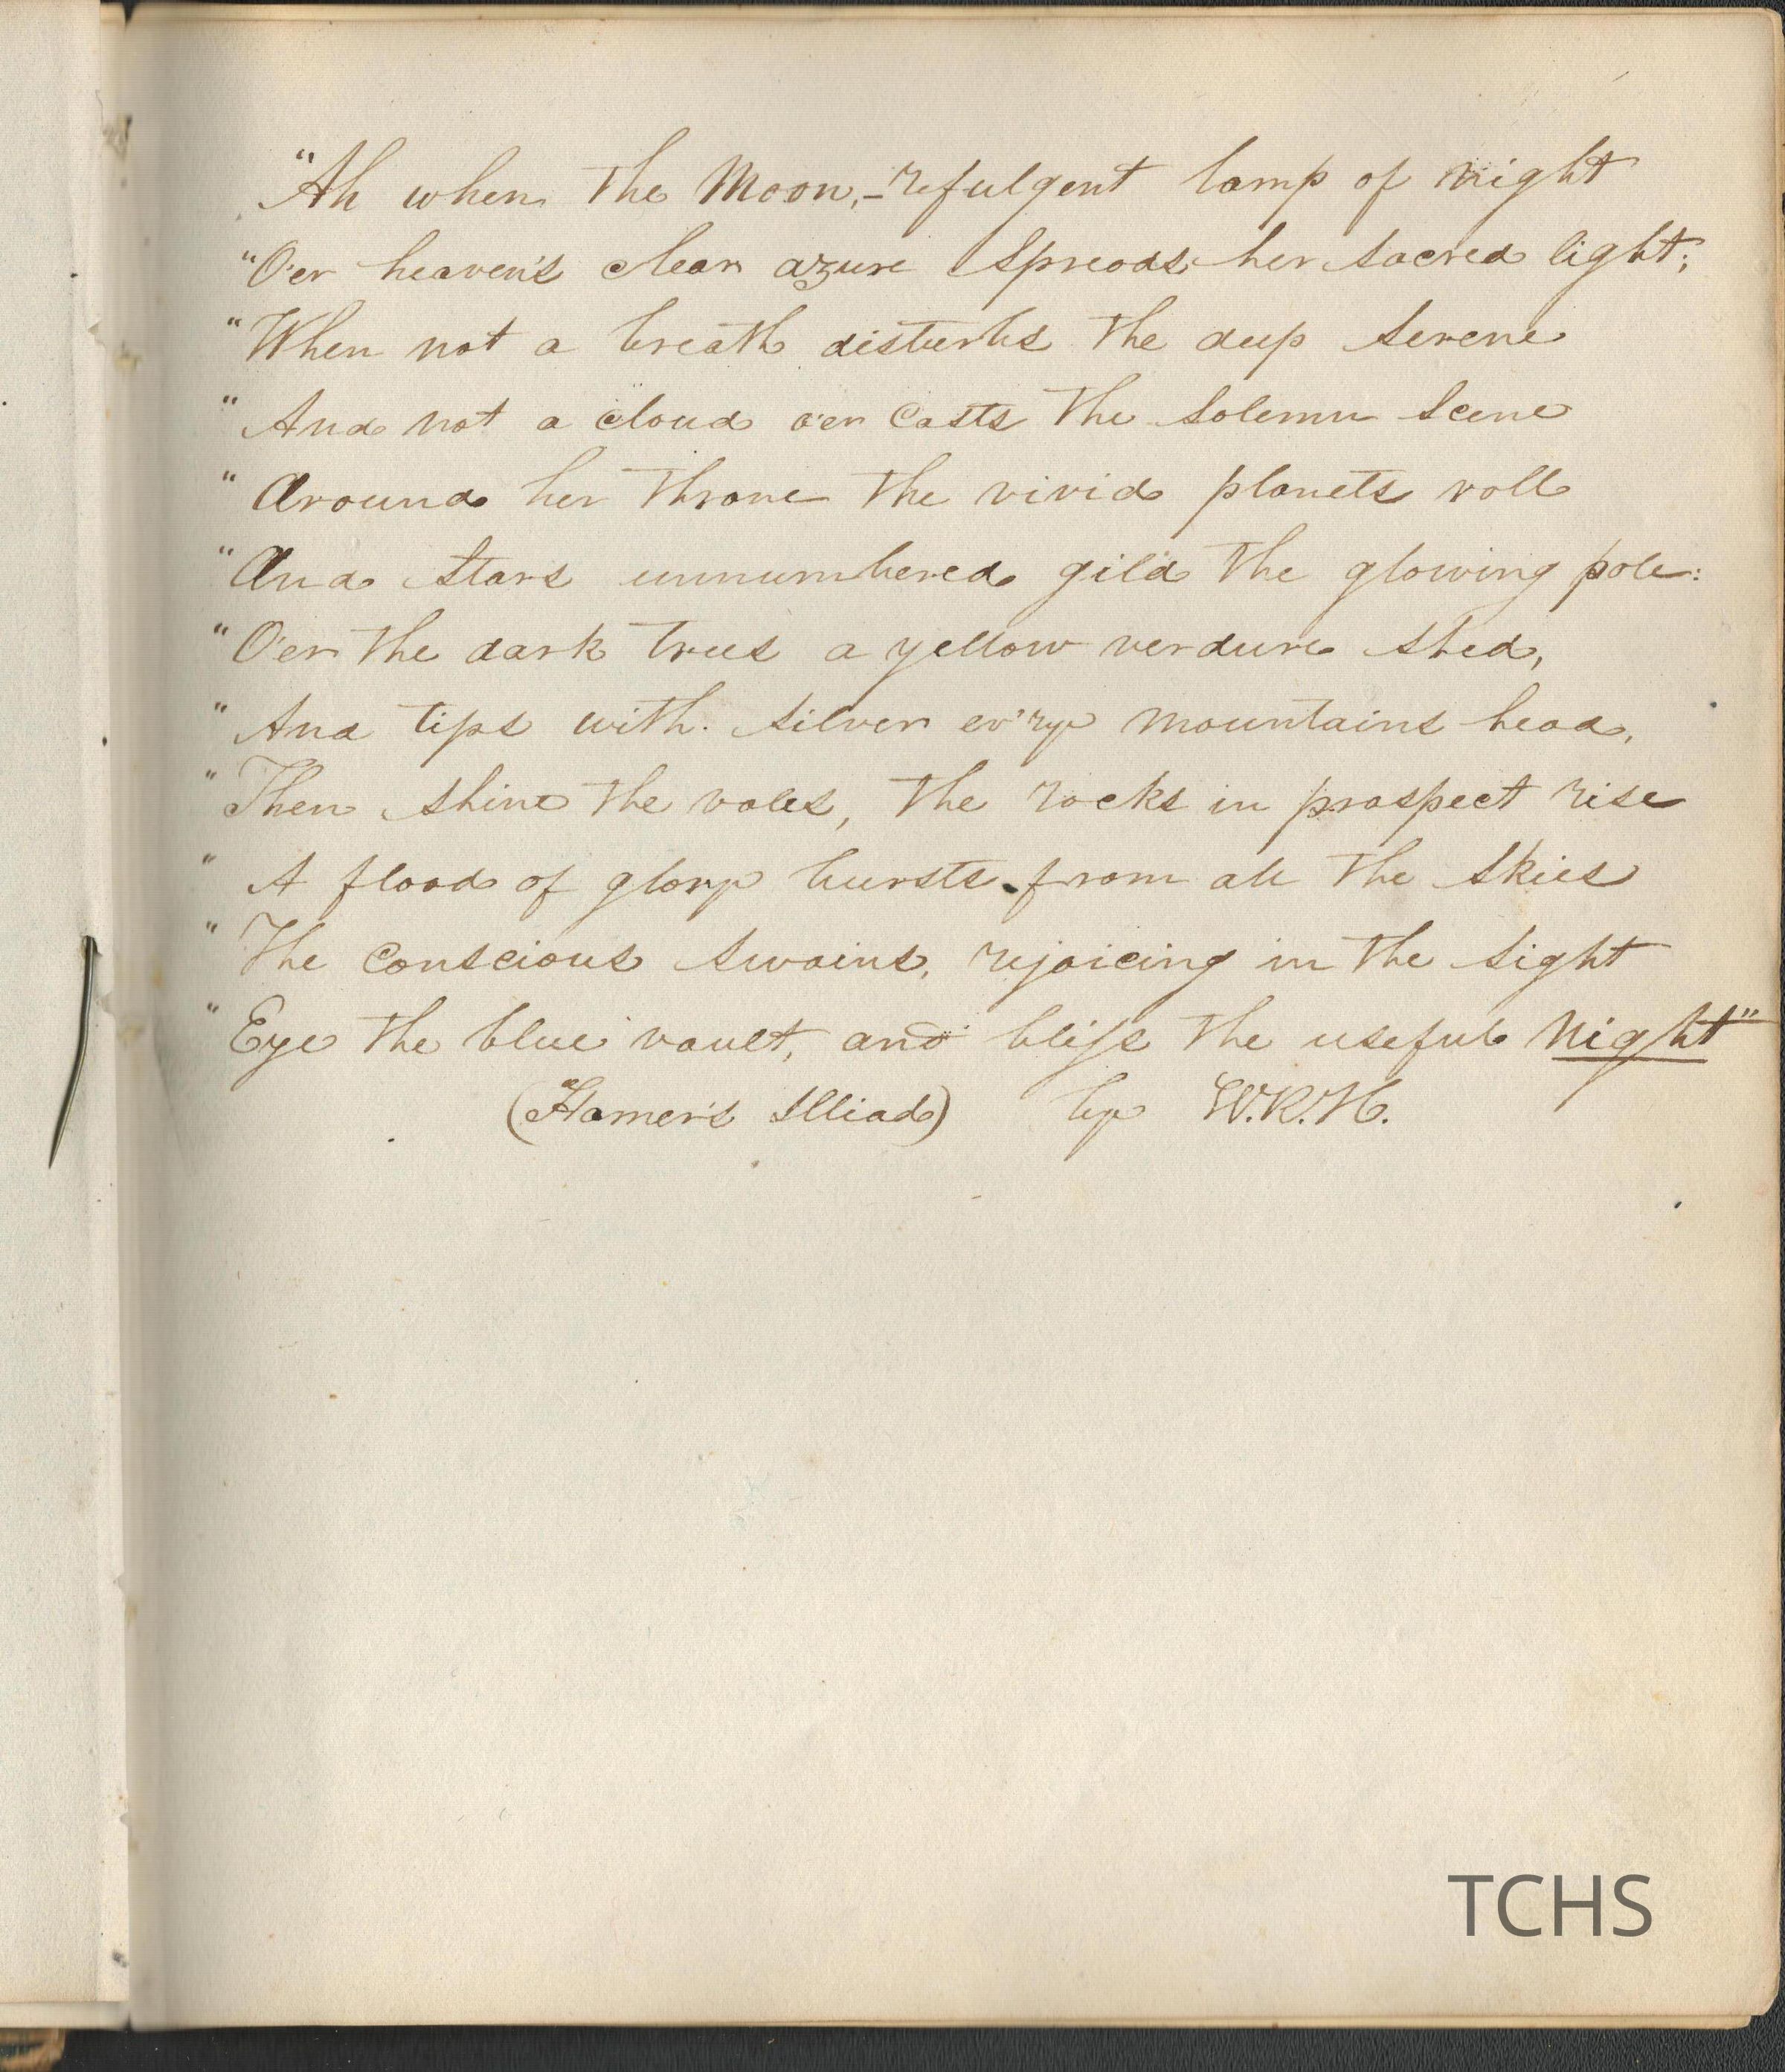 "Ah when the Moon,-refulgent lamp of night
"O'er heaven's clear azure Spreads her sacred light;
"When not a breath disturbs the deep serene
"And not a cloud o'er Casts the Solemn Scene
"Around her throne the vivid planets roll
"And Stars unnumbered gild the glowing pole:
"O'er the dark trees a yellow verdure shed,
"And tips with silver ev'ry mountains head,
"Then shine the vales, the rocks in prospect rise
"A flood of glory bursts from all the Skies
"The Conscious Swains, rejoicing in the Sight
"Eye the blue vault, and bless the useful Night"
(Homer's Illiad) by W.R.H.
TCHS